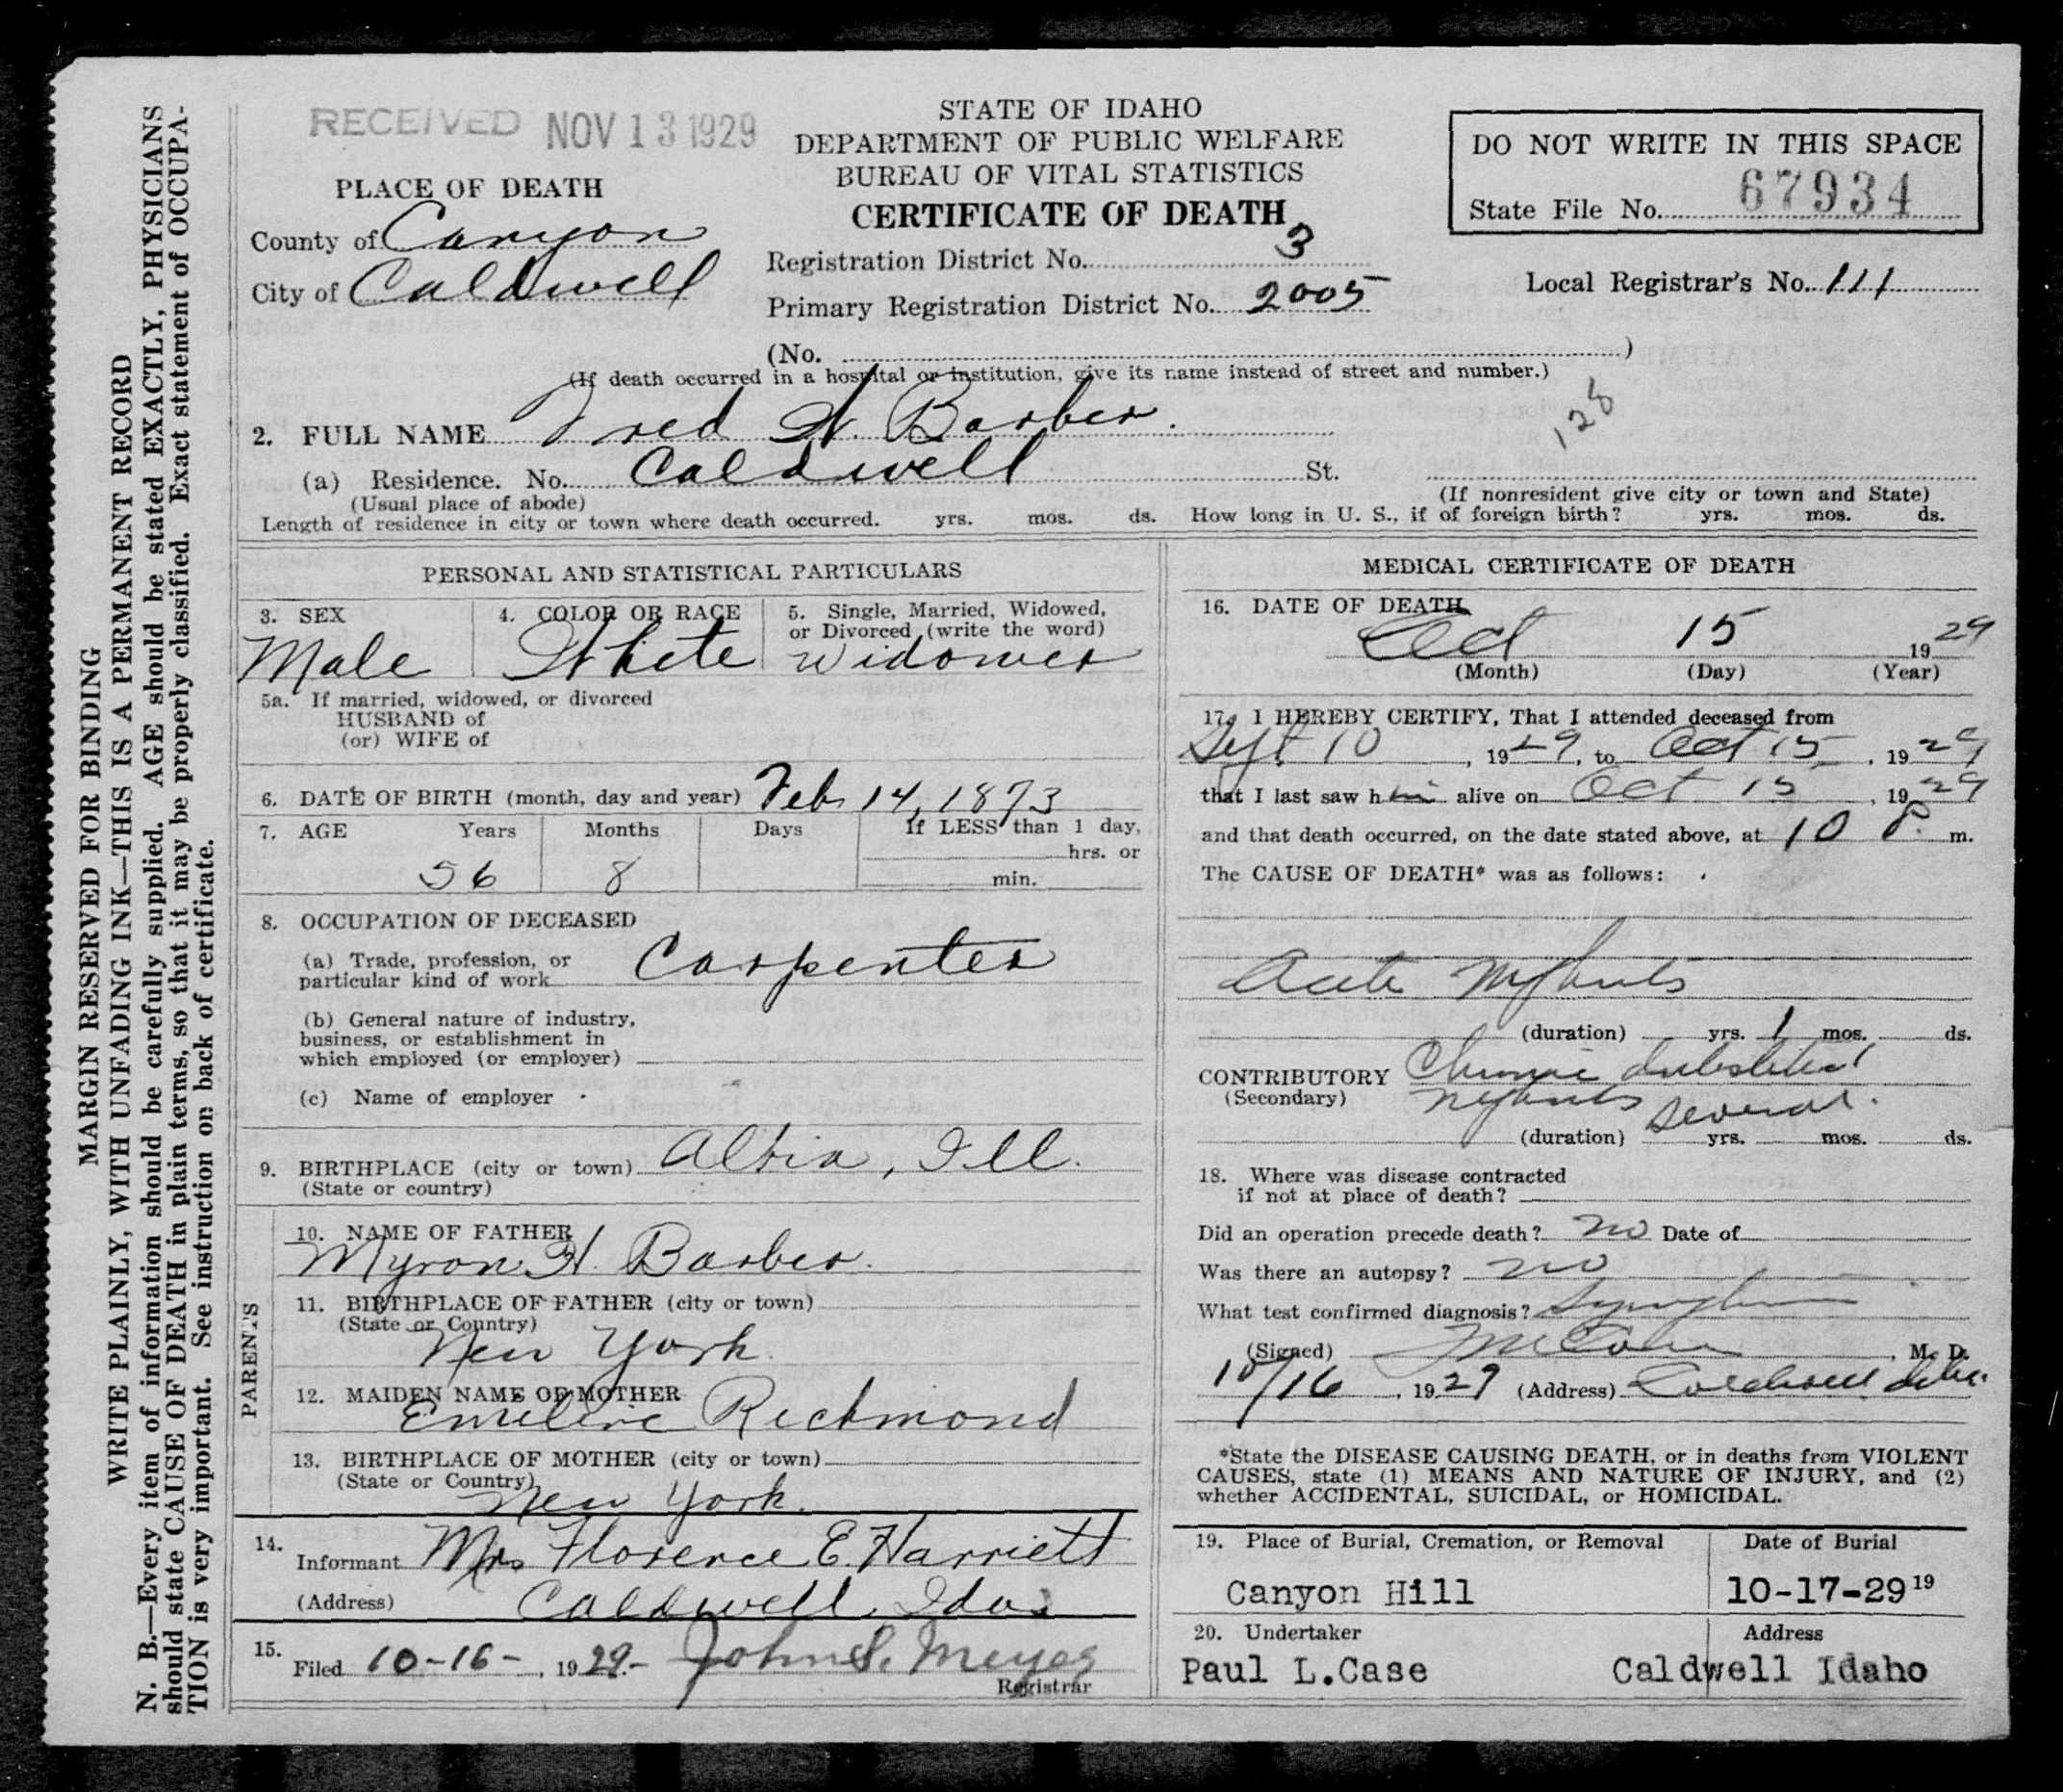 RECEIVED NOV 13 1929
STATE OF IDAHO
DEPARTMENT OF PUBLIC WELFARE
BUREAU OF VITAL STATISTICS
CERTIFICATE OF DEATH
DO NOT WRITE IN THIS SPACE
State File No. 67934
PLACE OF DEATH
County of Canyon
City of Caldwell
Registration District No. 3
Primary Registration District No. 2005
Local Registrar's No. 111
(No. )
(If death occurred in a hospital or institution, give its name instead of street and number.)
128
2. FULL NAME Fred W. Barber.
(a) Residence. No. Caldwell St.
(Usual place of abode)
(If nonresident give city or town and State)
Length of residence in city or town where death occurred. yrs. mos. ds. How long in U. S., if of foreign birth? yrs. mos. ds.
PERSONAL AND STATISTICAL PARTICULARS
3. SEX
Male
4. COLOR OR RACE
White
5. Single, Married, Widowed,
or Divorced (write the word)
Widower
5a. If married, widowed, or divorced
HUSBAND of
(or) WIFE of
6. DATE OF BIRTH (month, day and year) Feb 14, 1873
7. AGE Years Months Days If LESS than 1 day,
hrs. or
56 8 min.
8. OCCUPATION OF DECEASED
(a) Trade, profession, or
particular kind of work Carpenter
(b) General nature of industry,
business, or establishment in
which employed (or employer)
(c) Name of employer
9. BIRTHPLACE (city or town) Ill.
(State or country)
PARENTS
10. NAME OF FATHER
Myron H. Barber.
11. BIRTHPLACE OF FATHER (city or town)
(State or Country)
New York.
12. MAIDEN NAME OF MOTHER
Emeline Richmond
13. BIRTHPLACE OF MOTHER (city or town)
(State or Country)
New York.
14.
Informant Mrs Florence E. Harriett
(Address) Caldwell, Ida.
15.
Filed 10-16-, 1929.- John S. Meyer
Registrar
MEDICAL CERTIFICATE OF DEATH
16. DATE OF DEATH
Oct 15 1929
(Month) (Day) (Year)
17. I HEREBY CERTIFY, That I attended deceased from
Sept 10, 1929, to Oct 15, 1929
that I last saw him alive on Oct 15, 1929
and that death occurred, on the date stated above, at 10 P. m.
The CAUSE OF DEATH* was as follows:
Acute Nephritis
(duration) yrs. 1 mos. ds.
CONTRIBUTORY Chronic Interstitial
(Secondary) Nephritis
several.
(duration) yrs. mos. ds.
18. Where was disease contracted
if not at place of death?
Did an operation precede death? no Date of
Was there an autopsy? no
What test confirmed diagnosis?
(Signed) , M. D.
10/16, 1929 (Address) Caldwell Idaho
*State the DISEASE CAUSING DEATH, or in deaths from VIOLENT
CAUSES, state (1) MEANS AND NATURE OF INJURY, and (2)
whether ACCIDENTAL, SUICIDAL, or HOMICIDAL.
19. Place of Burial, Cremation, or Removal
Canyon Hill
Date of Burial
10-17-29 19
20. Undertaker
Paul L.Case
Address
Caldwell Idaho
MARGIN RESERVED FOR BINDING
WRITE PLAINLY, WITH UNFADING INK—THIS IS A PERMANENT RECORD
N. B.—Every item of information should be carefully supplied. AGE should be stated EXACTLY, PHYSICIANS
should state CAUSE OF DEATH in plain terms, so that it may be properly classified. Exact statement of OCCUPA-
TION is very important. See instruction on back of certificate.